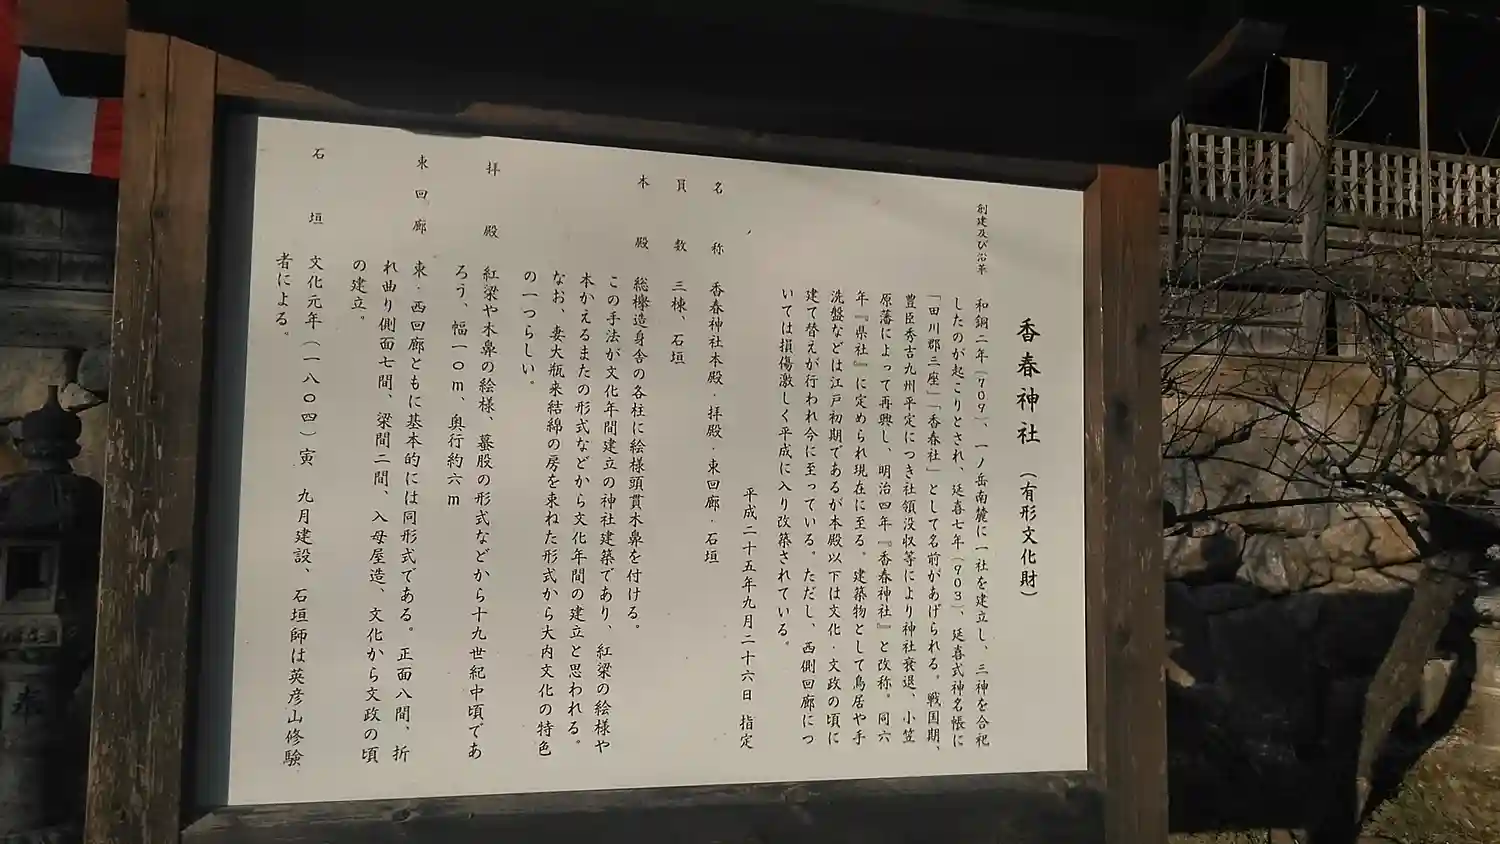 香春神社（有形文化財）
創建及び沿革　和銅二年（７０９）、一ノ岳南麓に一社を建立し、三神を合祀
したのが起こりとされ、延喜七年（９０３）、延喜式神名帳に
「田川郡三座」「香春社」として名前があげられる。戦国期、
豊臣秀吉九州平定につき社領没収等により神社衰退、小笠
原藩によって再興し、明治四年『香春神社』と改称。同六
年『県社』に定められ現在に至る。建築物として鳥居や手
洗盤などは江戸初期であるが本殿以下は文化・文政の頃に
建て替えが行われ今に至っている。ただし、西側回廊につ
いては損傷激しく平成に入り改築されている。
平成二十五年九月二十六日　指定
名称　香春神社本殿・拝殿・東回廊・石垣
員数　三棟、石垣
本殿　総欅造身舎の各柱に絵様頭貫木鼻を付ける。
この手法が文化年間建立の神社建築であり、紅梁の絵様や
本かえるまたの形式などから文化年間の建立と思われる。
なお、妻大瓶束結綿の房を束ねた形式から大内文化の特色
の一つらしい。
拝殿　紅梁や木鼻の絵様、蟇股の形式などから十九世紀中頃であ
ろう、幅一〇ｍ、奥行約六ｍ
東回廊　東・西回廊ともに基本的には同形式である。正面八間、折
れ曲り側面七間、梁間二間、入母屋造、文化から文政の頃
の建立。
石垣　文化元年（一八〇四）寅　九月建設、石垣師は英彦山修験
者による。
奉